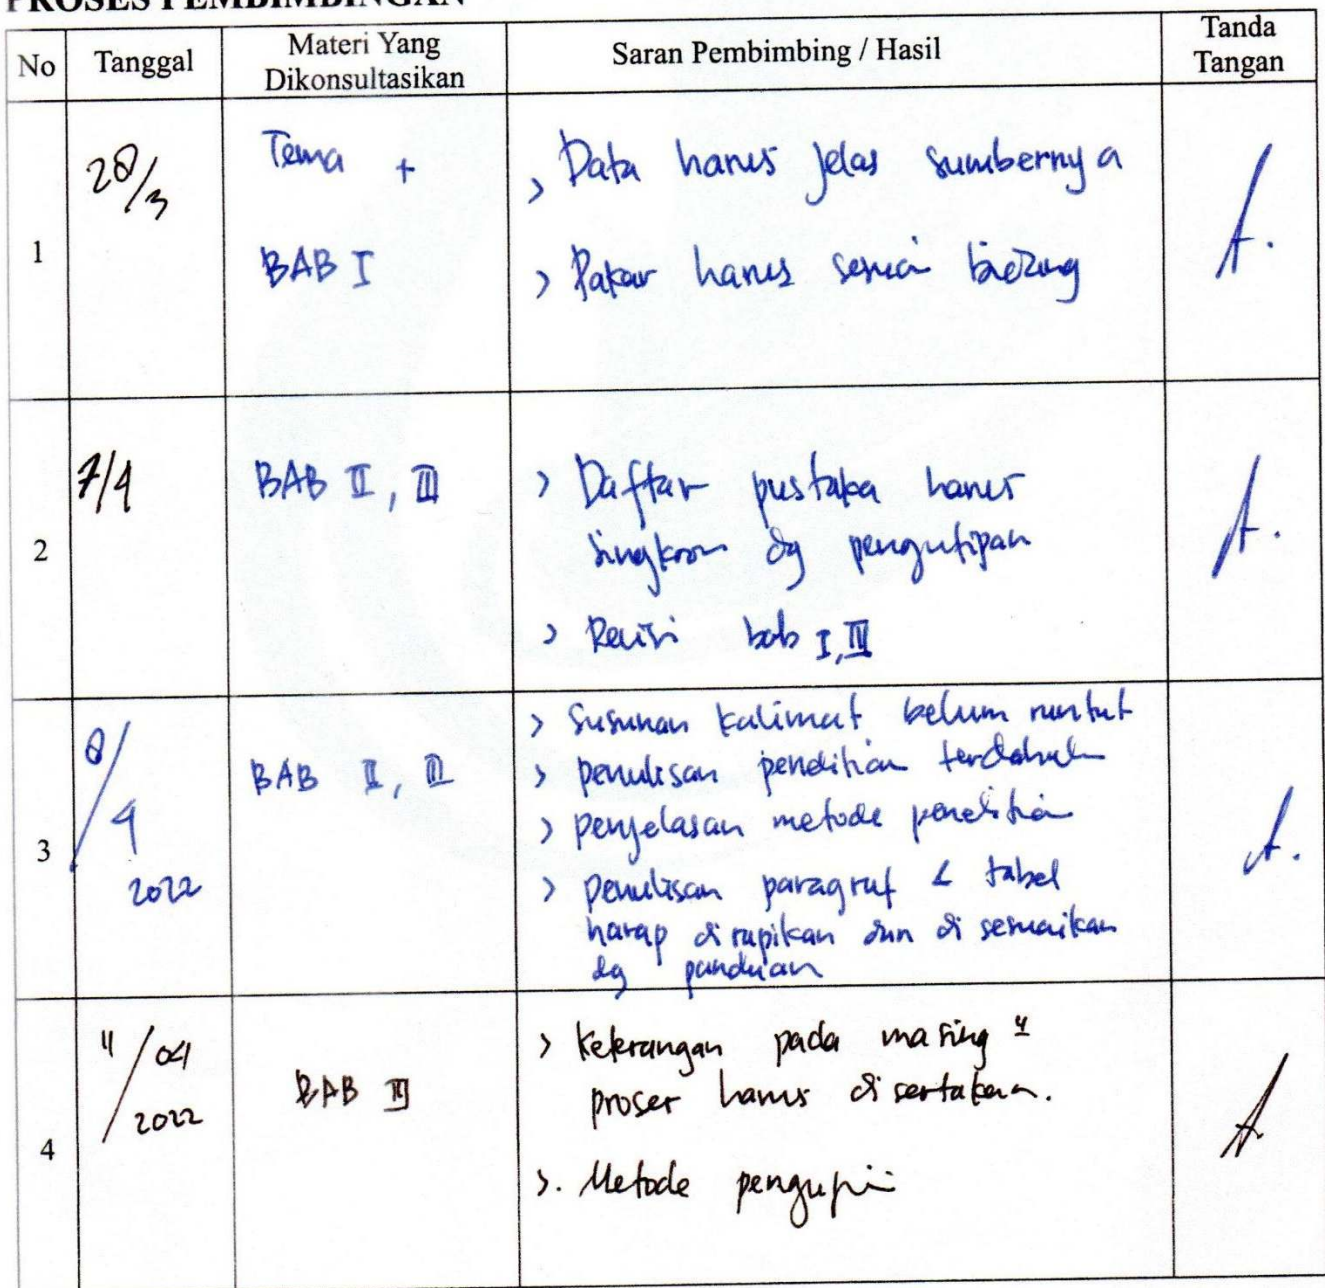 PROSES PEMBIMBINGAN
No Tanggal Materi Yang Dikonsultasikan Saran Pembimbing / Hasil Tanda Tangan
1 28/3 Tema + > Data harus jelas sumbernya
BAB I > Pakar harus sesuai bidang
2 7/4 BAB II, III > Daftar pustaka harus
singkron dg pengutipan
> Revisi bab I, III
3 8/4 2022 BAB II, III > Susunan kalimat belum runtut
> penulisan penelitian terdahulu
> penjelasan metode penelitian
> penulisan paragraf & tabel
harap di rapikan dan di sesuaikan
dg panduan
4 11/04 2022 BAB III > Keterangan pada masing"
proses harus di sertakan.
>. Metode penguji